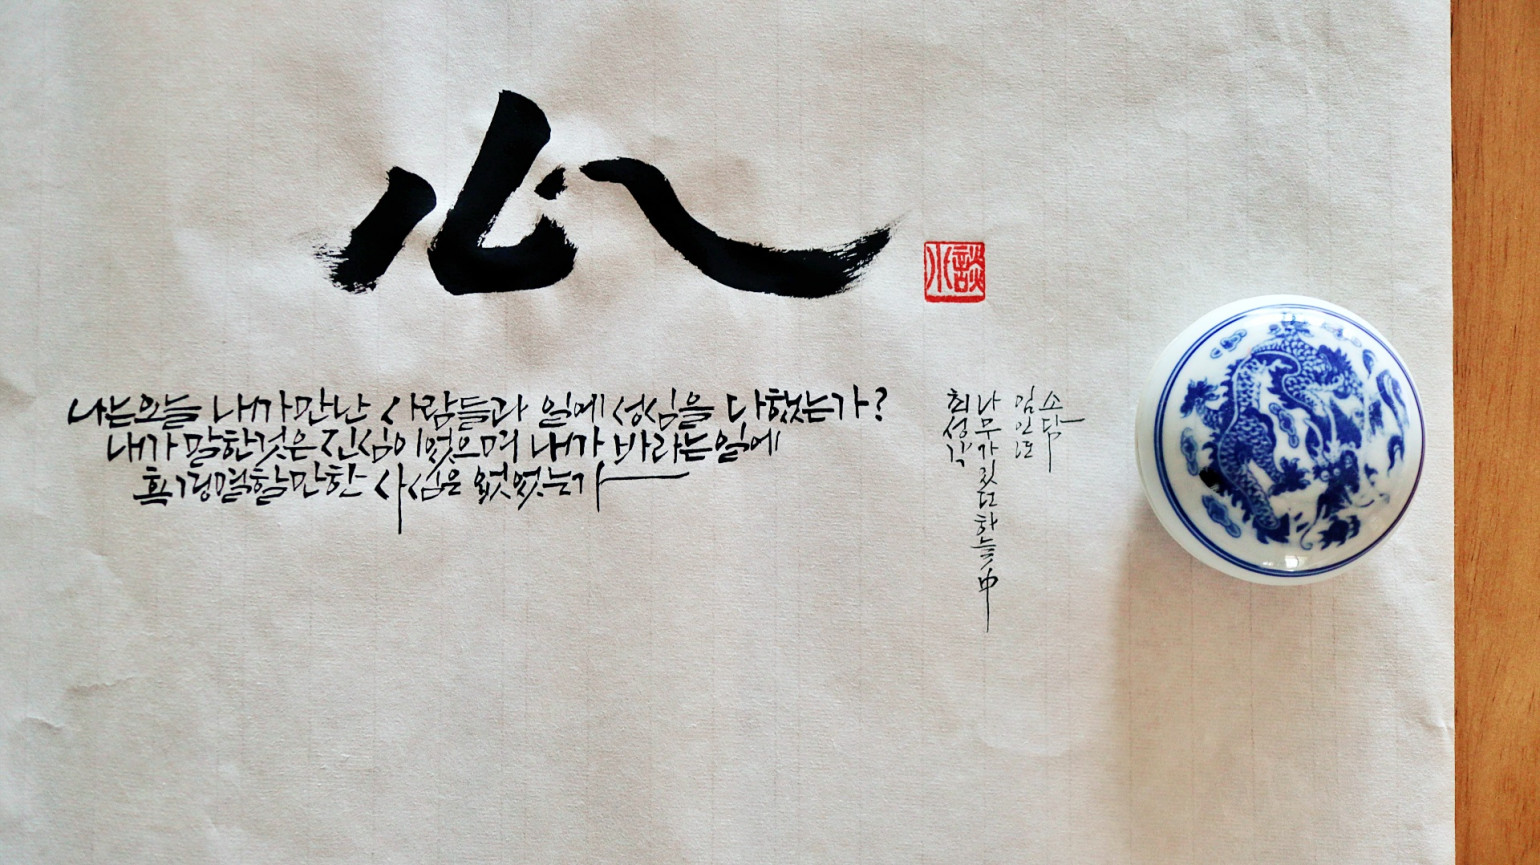 心
나는 오늘 내가 만난 사람들과 일에 성심을 다했는가?
내가 말한것은 진심이었으며 내가 바라는 일에
혹 경멸할만한 사심은 없었는가
小談
최성길
나무가 있던 하늘 中
임인년
소담